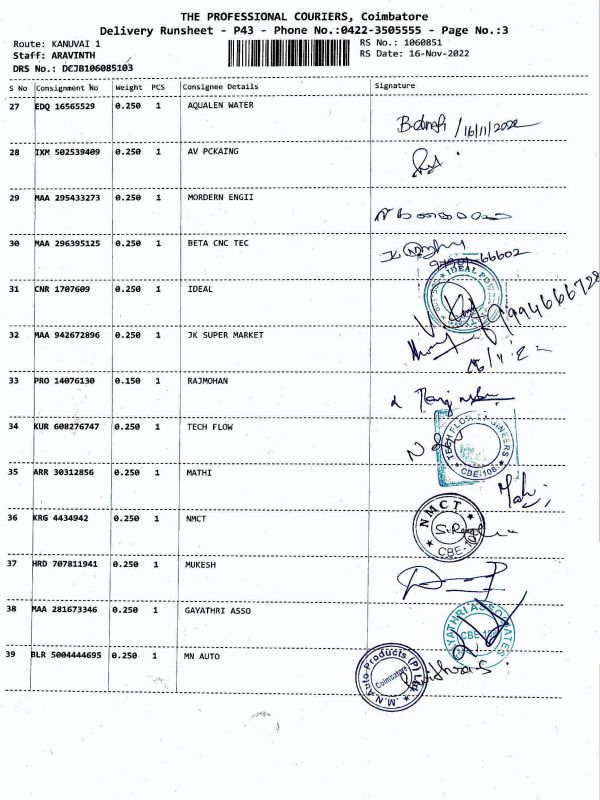 THE PROFESSIONAL COURIERS, Coimbatore
Delivery Runsheet - P43 - Phone No.:0422-3505555 - Page No.:3
Route: KANUVAI 1
RS No.: 1060851
Staff: ARAVINTH
RS Date: 16-Nov-2022
DRS No.: DCJB106085103
S No Consignment No Weight PCS Consignee Details Signature
27 EDQ 16565529 0.250 1 AQUALEN WATER
16/11/2022
28 IXM 502539409 0.250 1 AV PCKAING
29 MAA 295433273 0.250 1 MORDERN ENGII
30 MAA 296395125 0.250 1 BETA CNC TEC
31 CNR 1707609 0.250 1 IDEAL
IDEAL
9994666728
32 MAA 942672896 0.250 1 JK SUPER MARKET
33 PRO 14076130 0.150 1 RAJMOHAN
34 KUR 608276747 0.250 1 TECH FLOW
TECH FLOW ENGINEERS
CBE-108
35 ARR 30312856 0.250 1 MATHI
36 KRG 4434942 0.250 1 NMCT
NMCT
CBE-108
37 HRD 707811941 0.250 1 MUKESH
38 MAA 281673346 0.250 1 GAYATHRI ASSO
GAYATHRI ASSOCIATES
CBE 108
39 BLR 5004444695 0.250 1 MN AUTO
M.N Auto Products (P) Ltd
Coimbatore